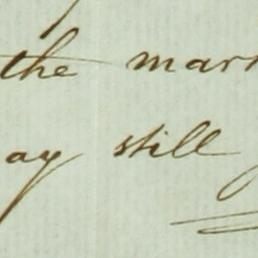 the marr
ay still